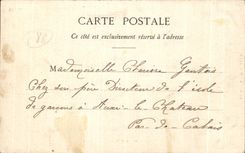 CARTE POSTALE
Ce côté est exclusivement réservé à l'adresse
Mademoiselle Gantois
Chez son père Directeur de l'école
de garçons à Auxi-le-Château
Pas-de-Calais